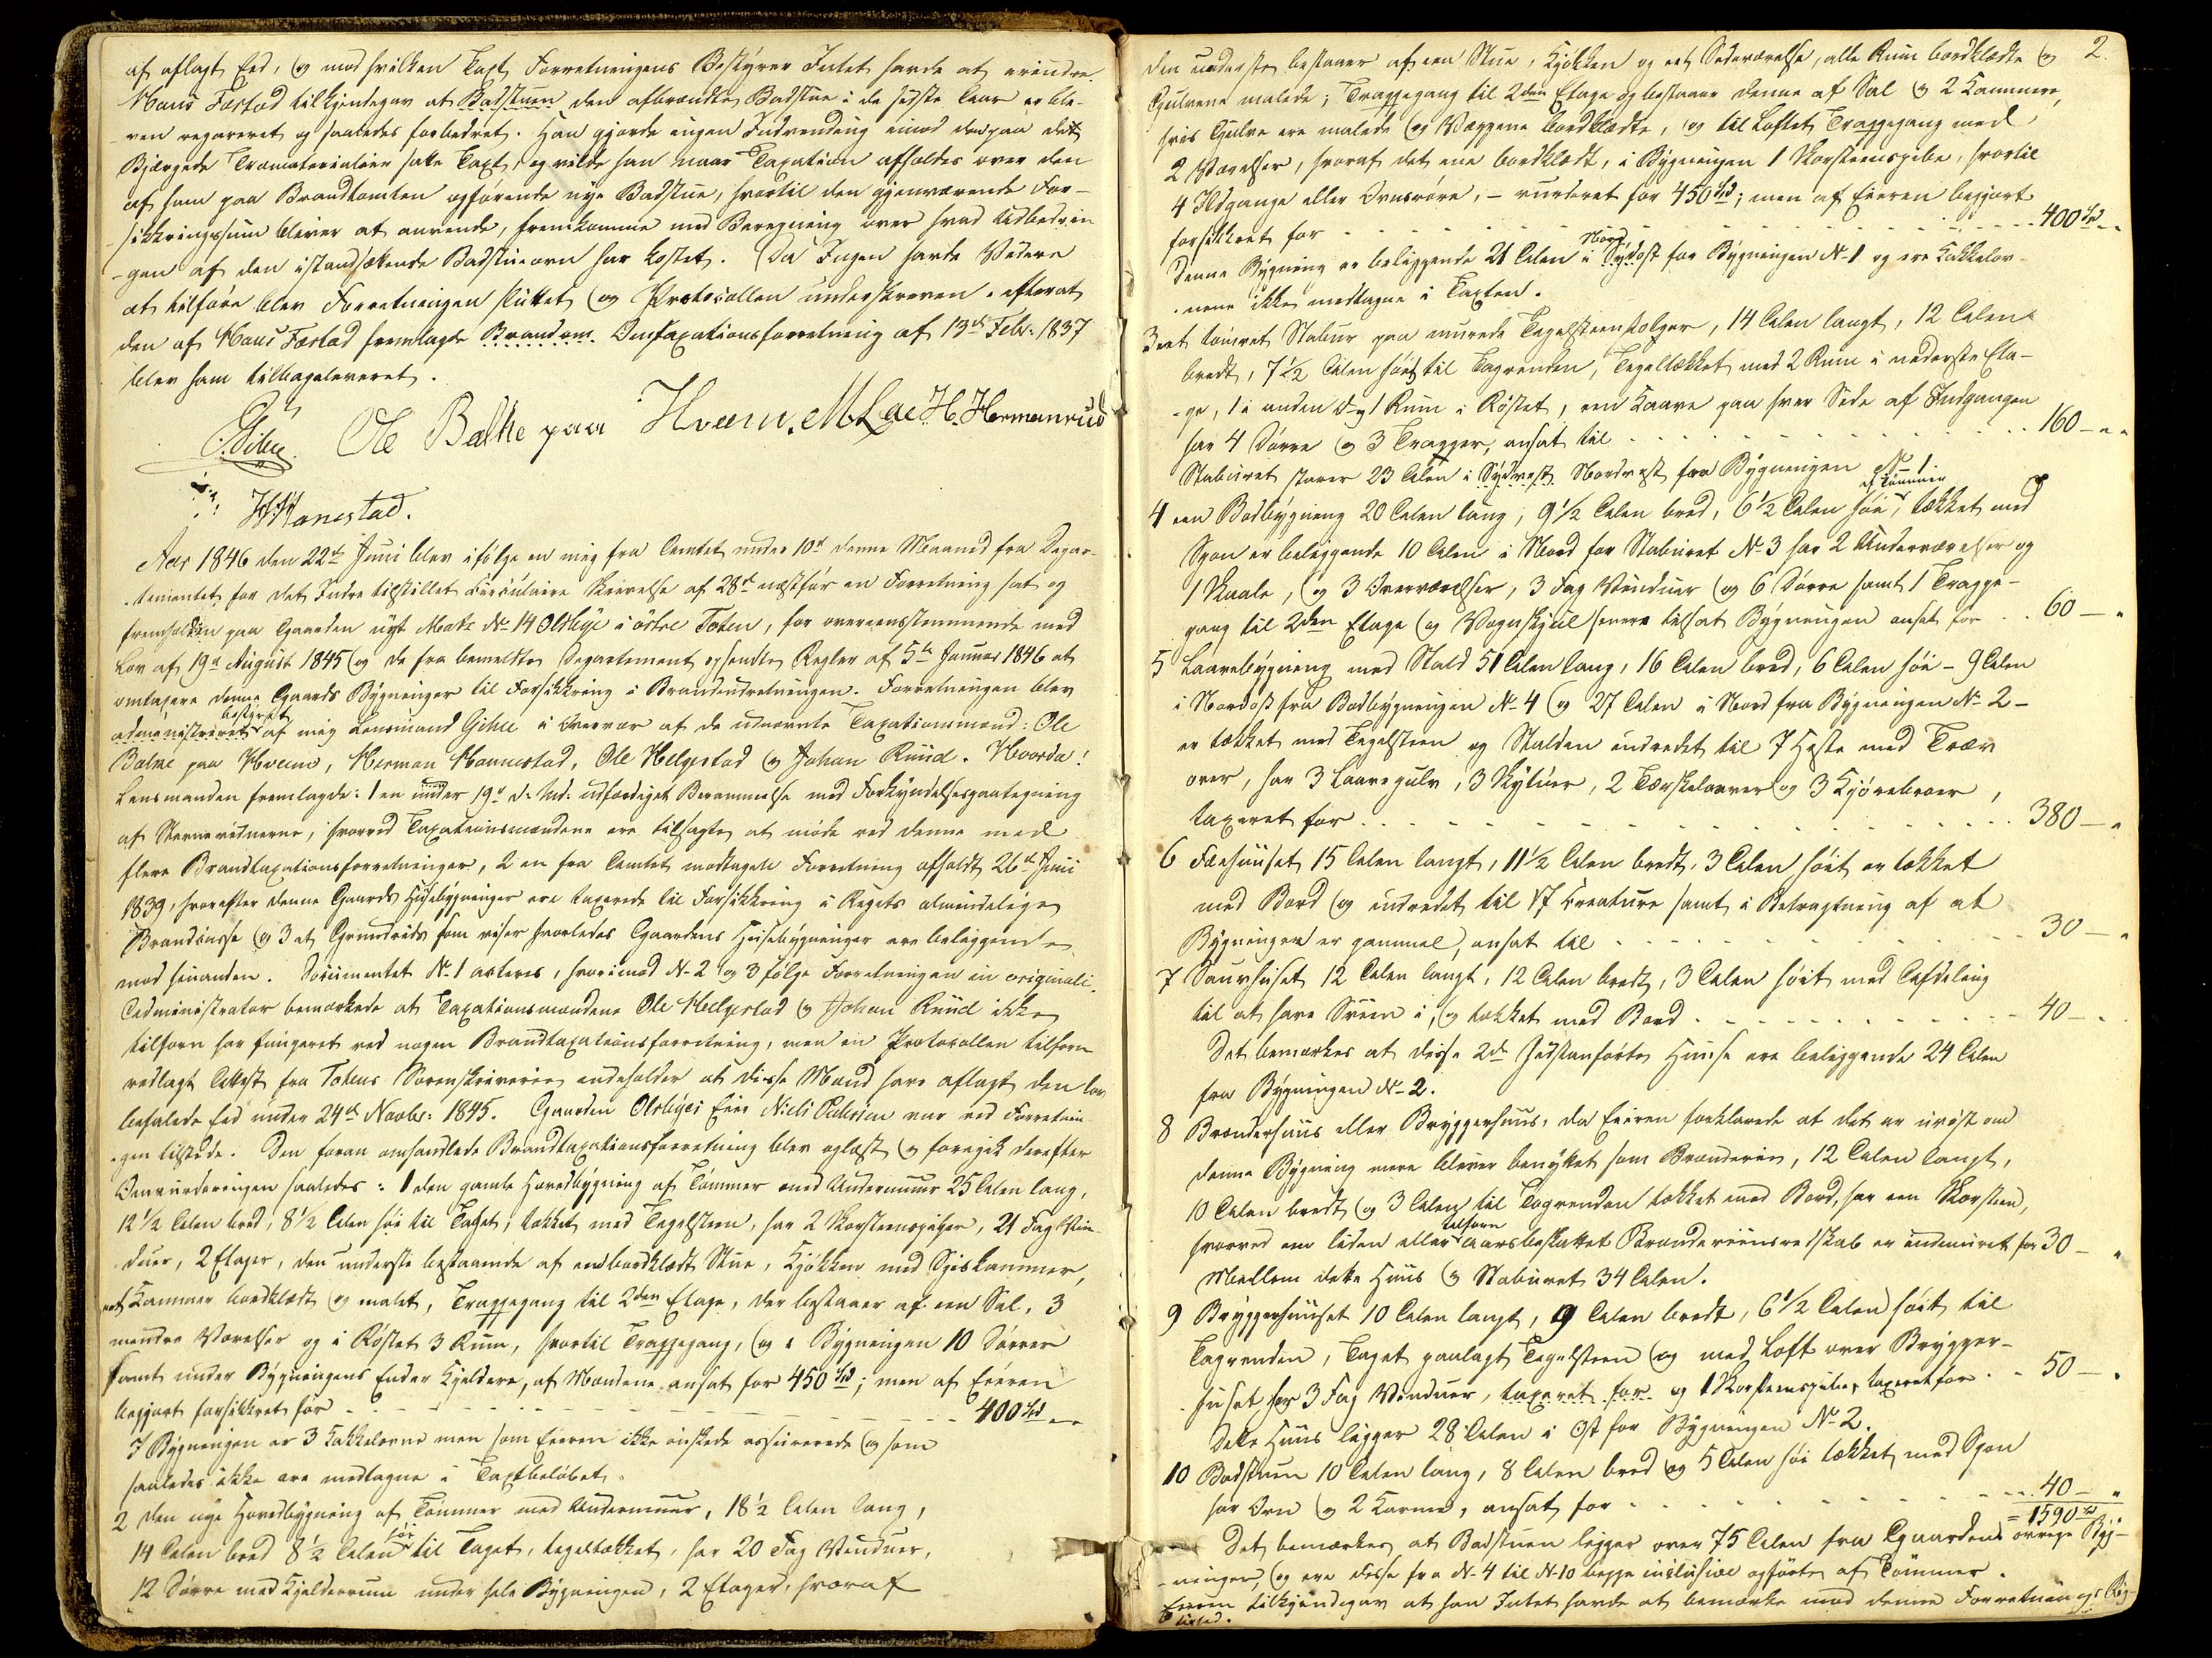 af aflagt Eed, og mod hvilken Taxt Forretningens Bestyrer Intet havde at erindre.
Hans Færstad tilkjendegav at Badstuen den afbrændte Badstue i de sidste Aar er ble-
ven repareret og saaledes forbedret. Han gjorde ingen Indvending imod den paa det
Bjærgede Træmaterialier satte Taxt, og vilde han naar Taxation afholdes over den
af ham paa Brandtomten opførende nye Badstue, hvortil den gjenværende For-
sikkringssum bliver at anvende, fremkomme med Beregning over hvad Udbedrin
-gen af den istandsættende Badstueovn har kostet. Da Ingen havde Videre
at tilføre blev Forretningen sluttet og Protocollen underskreven, efterat
den af Hans Færstad fremlagde Brandom Omtaxationsforretning af 13de Febr: 1837
blev ham tilbageleveret.
Gihle Ole Balke paa Hveem. M Lae H. Hermanrud
H Hanestad.
Aar 1846 den 22de Juni blev ifølge en mig fra Amtet under 10de denne Maaned fra Depar-
tementet for det Indre tilstillet Circulaire Skrivelse af 28de næstfør en Forretning sat og
fremholden paa Gaarden nyt Matr. No 14 Olsbye i østre Toten, for overeensstemmende med
Lov af 19de August 1845 og de fra bemeldte Departement opsendte Regler af 5te Januar 1846 at
omtaxere denne Gaards Bygninger til Forsikkring i Brandindretningen. Forretningen blev
bestyret
administreret af mig Lensmand Gihle i Overvær af de udnævnte Taxationsmænd: Ole
Balke paa Hveem, Herman Hannestad, Ole Helgestad og Johan Ruud. Hvorda!
Lensmanden fremlagde: 1 en under 19de d: Md: udfærdiget Berammelse med Forkyndelsespaategning
af Stævnevidnerne, hvorved Taxationsmændene ere tilsagte at møde ved denne med
flere Brandtaxationsforretninger, 2 en fra Amtet modtagen Forretning afholdt 26de Juni
1839, hvorefter denne Gaards Huusebygninger ere taxerede til Forsikkring i Rigets almindelige
Brandcasse og 3 et Grundrids som viser hvorledes Gaardens Huusebygninger ere beliggende
mod hinanden. Documentet No 1 acteres, hvorimod No 2 og 3 følge Forretningen in originali.
Administrator bemærkede at Taxationsmændene Ole Helgestad og Johan Ruud ikke
tilforn har fungeret ved nogen Brandtaxationsforretning, men en Protocollen tilforn
vedlagt Attest fra Totens Sorenskriverie indeholder at disse Mænd have aflagt den lov
befalede Eed under 24de Novbr: 1845. Gaarden Olsbyes Eier Niels Pedersen var ved Forretnin
-gen tilstede. Den foran omhandlede Brandtaxationsforretning blev oplæst og foregik derefter
Omvurderingen saaledes: 1 den gamle Hovedbygning af Tømmer med Undermuur 25 Alen lang,
12 1/2 Alen bred, 8 1/2 Alen høi til Taget, tækket med Tegelsteen, har 2 Skorsteenspiber, 21 Fag Vin-
duer, 2 Etager, den underste bestaaende af en bordklædt Stue, Kjøkken med Spiskammer,
eet Kammer bordklædt og malet, Trappegang til 2den Etage, der bestaaer af een Sal, 3
mindre Værelser og i Røstet 3 Rum, hvortil Trappegang, og i Bygningen 10 Dørrer
samt under Bygningens Ender Kjeldere, af Mændene ansat for 450 Spd; men af Eieren
begjært forsikkret for - - - - - - - - - - 400 Spd - -
I Bygningen er 3 Kakkelovne men som Eieren ikke ønskede assurerede og som
saaledes ikke ere medtagne i Taxtbeløbet.
2 den nye Hovedbygning af Tømmer med Undermuur, 18 1/2 Alen lang,
høi
14 Alen bred 8 1/2 Alen til Taget, tegeltækket, har 20 Fag Vinduer,
12 Dørre med Kjelderrum under hele Bygningen, 2 Etager, hvoraf
2.
den underste bestaaer af een Stue, Kjøkken og eet Sideværelse, alle Rum bordklædte og
Gulvene malede; Trappegang til 2den Etage og bestaaer denne af Sal og 2 Kammere,
hvis Gulve ere malede og Væggene bordklædte, og til Loftet Trappegang med
2 Værelser, hvoraf det ene bordklædt, i Bygningen 1 Skorsteenspibe, hvortil
4 Ildgange eller Ovnsrøre, - vurderet for 450 Spd; men af Eieren begjært
forsikkret for - - - - - - - - - - 400 Spd - -
Nord
Denne Bygning er beliggende 21 Alen i Sydost for Bygningen No 1 og ere Kakkelov-
nene ikke medtagne i Taxten.
3 eet tømret Stabur paa murede Tegelsteenstolper, 14 Alen langt, 12 Alen
bredt, 7 1/2 Alen høit til Tagrenden, Tegeltækket med 2 Rum i nederste Eta-
-ge, 1 i anden og 1 Rum i Røstet, een Kaave paa hver Side af Indgangen
har 4 Dørre og 3 Trapper, ansat til - - - - - - - 160 - - -
Staburet staaer 23 Alen i Sydvest Nordvest fra Bygningen No 1.
af Tømmer
4 een Bodbygning 20 Alen lang, 9 1/2 Alen bred, 6 1/2 Alen høi, tækket med
Spon er beliggende 10 Alen i Nord for Staburet No 3 har 2 Underværelser og
1 Svale, og 3 Overværelser, 3 Fag Vinduer og 6 Dørre samt 1 Trappe-
gang til 2den Etage og Vognskjul senere tilsat Bygningen ansat for - - 60 - -
5 Laavebygning med Stald 51 Alen lang, 16 Alen bred, 6 Alen høi - 9 Alen
i Nordost fra Bodbygningen No 4 og 27 Alen i Nord fra Bygningen No 2 -
er tækket med Tegelsteen og Stalden indredet til 7 Heste med Træv
over, har 3 Laavegulv, 3 Skytuer, 2 Tærskelaaver og 3 Kjørebroer,
taxeret for - - - - - - - - - - 380 - -
6 Fæehuuset 15 Alen langt, 11 1/2 Alen bredt, 3 Alen høit er tækket
med Bord og indredet til 17 Creature samt i Betragtning af at
Bygningen er gammel, ansat til - - - - - - - 30 - -
7 Sauehuset 12 Alen langt, 12 Alen bredt, 3 Alen høit med Afdeling
til at have Sviin i, og tækket med Bord - - - - - - 40 - -
Det bemærkes at disse 2de Sidstanførte Huuse ere beliggende 24 Alen
fra Bygningen No 2.
8 Brænderhuus eller Bryggerhuus, da Eieren forklarede at det er uvist om
denne Bygning mere bliver benyttet som Brænderie, 12 Alen langt,
10 Alen bredt og 3 Alen til Tagrenden tækket med Bord, har een Skorsteen,
tilforn
hvorved em liden eller aarsbeskattet Brænderiinsredskab er indmuret for 30 - -
Mellem dette Huus og Staburet 34 Alen.
9 Bryggerhuuset 10 Alen langt, 9 Alen bredt, 6 1/2 Alen høit til
Tagrenden, Taget paalagt Tegelsteen og med Loft over Brygger-
huset har 3 Fag Vinduer, taxeret for og 1 Skorsteenspibe, taxeret for - - 50 - -
Dette Huus ligger 28 Alen i Ost for Bygningen No 2.
10 Badstuen 10 Alen lang, 8 Alen bred og 5 Alen høi tækket med Spon
har Ovn og 2 Karme, ansat for - - - - - - - 40 - -
= 1590 Spd
Det bemærkes at Badstuen ligger over 75 Alen fra Gaardens øvrige Byg-
-ninger, og ere disse fra No 4 til No 10 begge inclusive opførte af Tømmer.
Eieren tilkjendegav at han Intet havde at bemærke mod denne Forretnings Rig-
tighed.